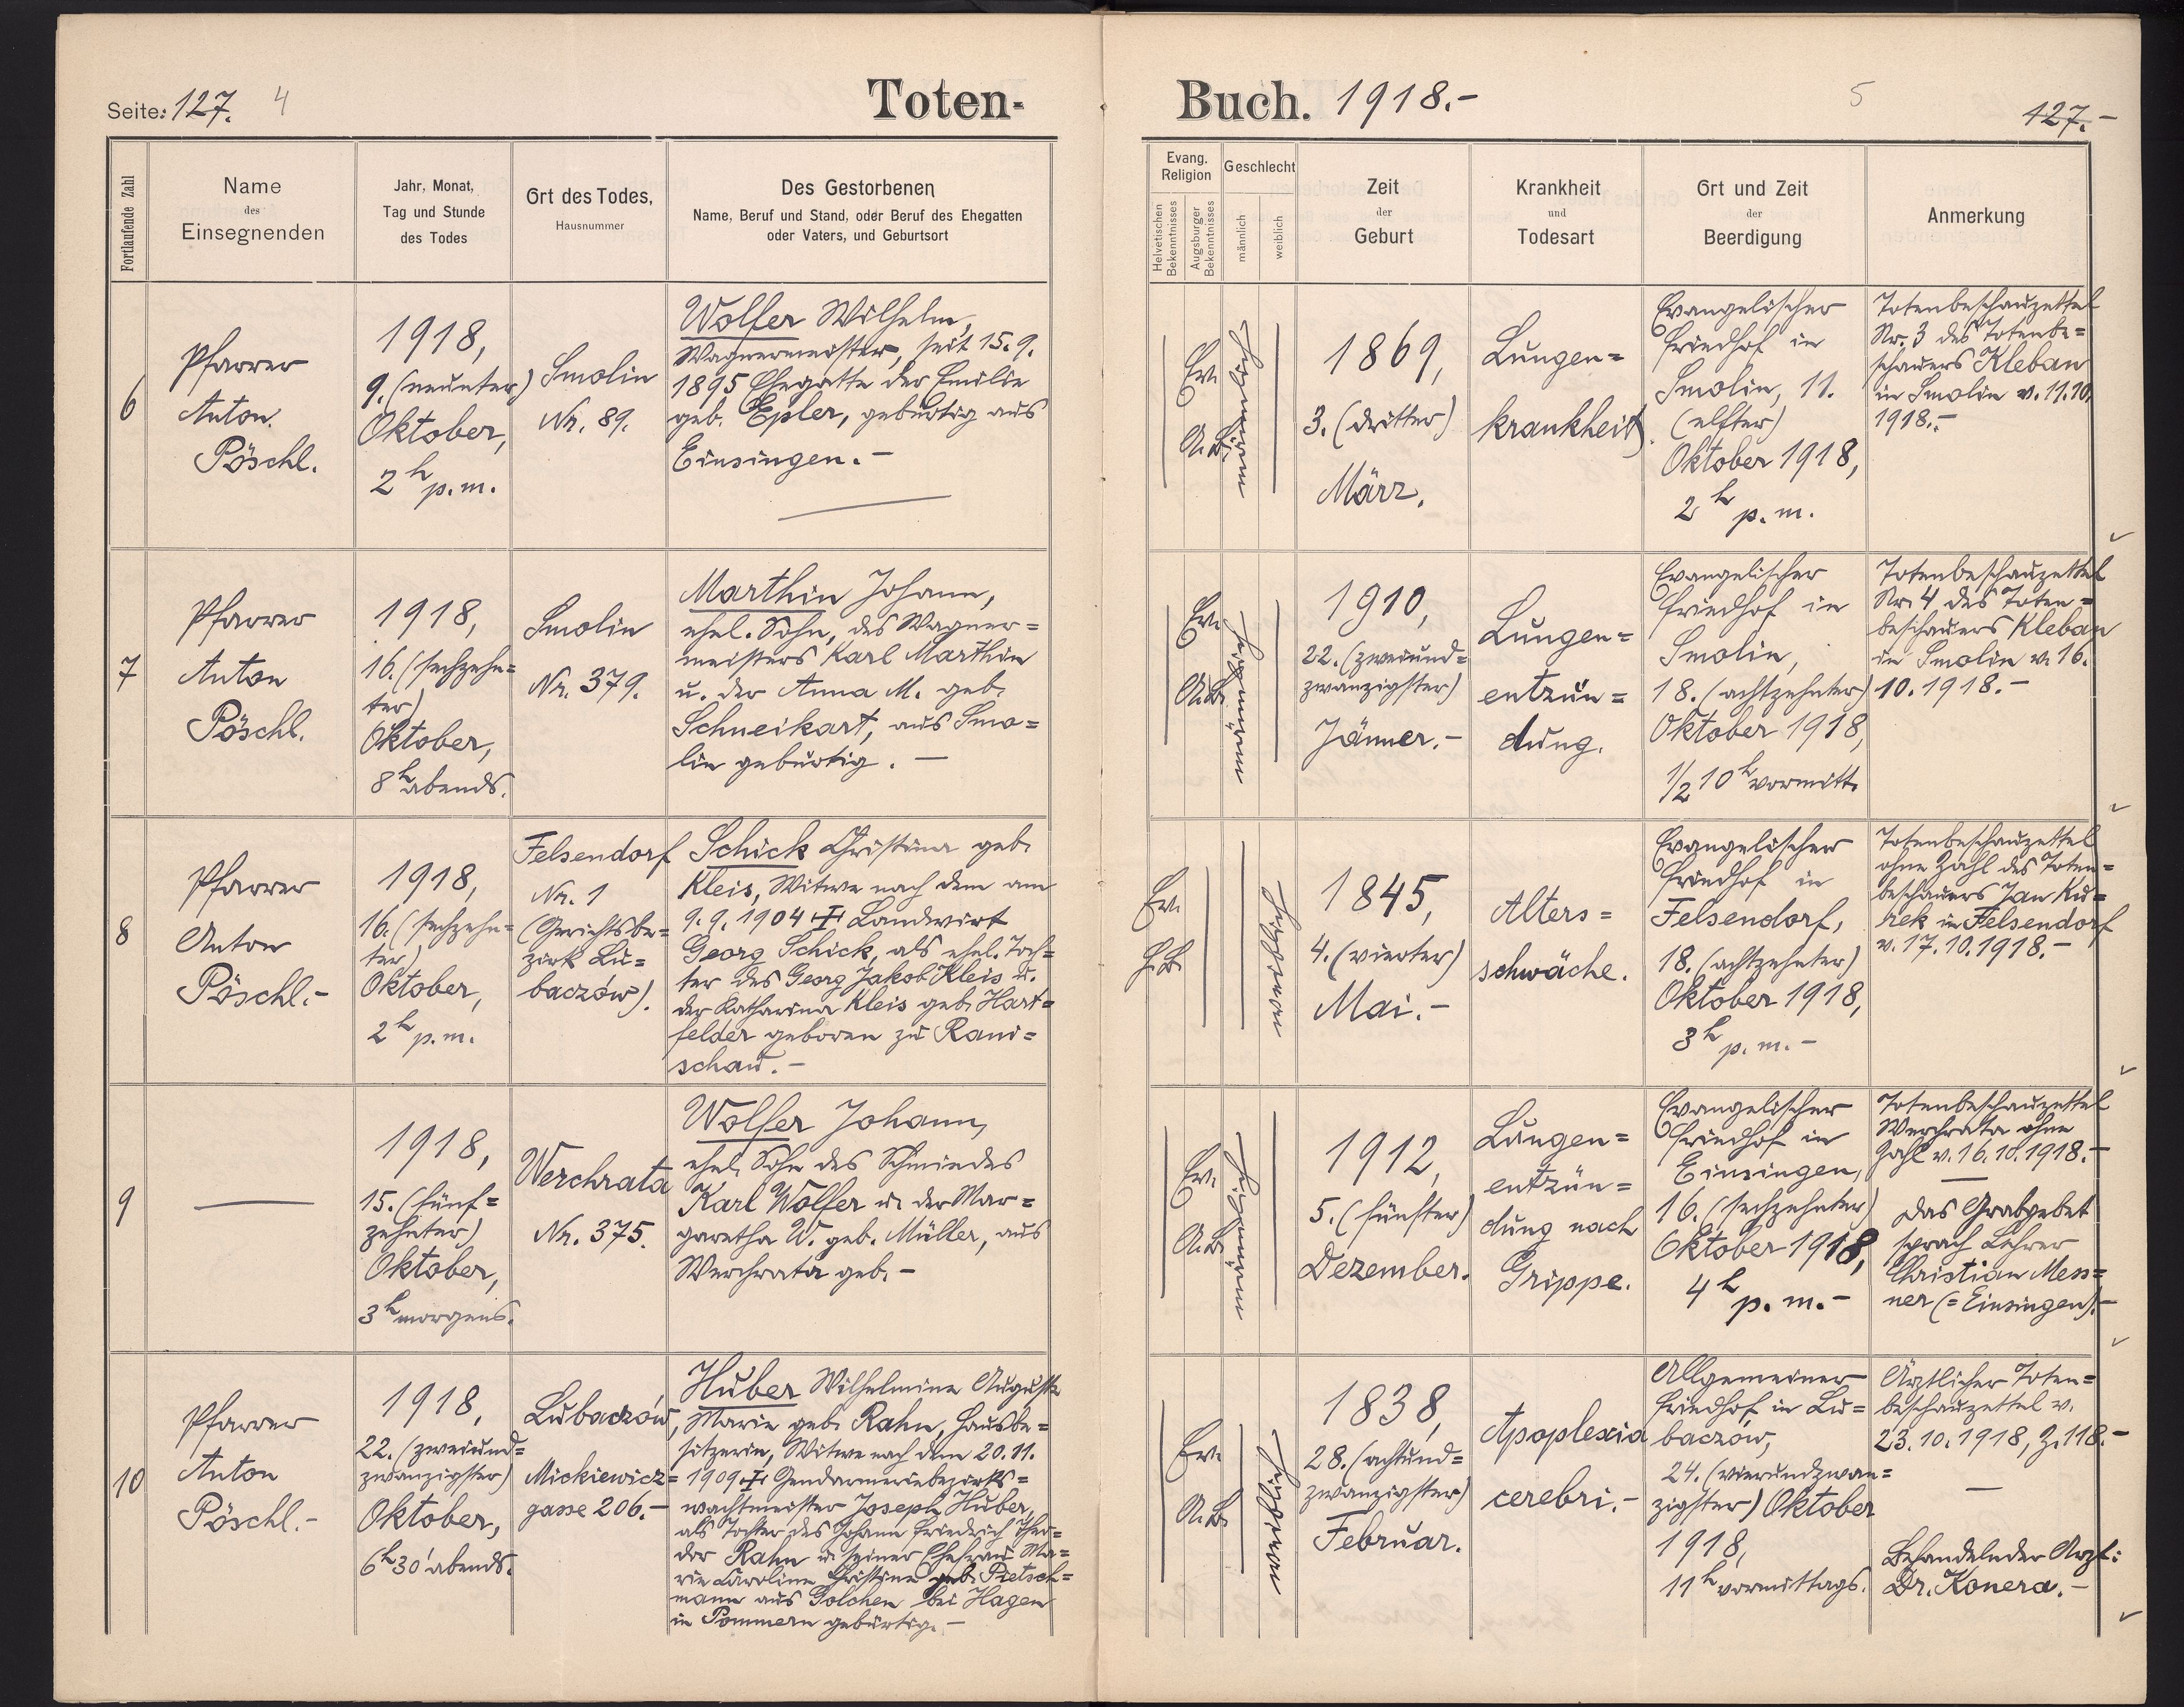 Seite: 127. 4
Toten-
Fortlaufende Zahl
Name
des
Einsegnenden
Jahr, Monat,
Tag und Stunde
des Todes
Ort des Todes,
Hausnummer
Des Gestorbenen
Name, Beruf und Stand, oder Beruf des Ehegatten
oder Vaters, und Geburtsort
6
Pfarrer
Anton.
Pöschl.
1918,
9. (neunter)
Oktober,
2h p.m.
Smolin
Nr. 89.
Wolfer Wilhelm,
Wagnermeister, seit 15.9.
1895 Ehegatte der Emilie
geb. Epler, gebürtig aus
Einsingen.-
7
Pfarrer
Anton
Pöschl.
1918,
16. (sechzehn=
ter)
Oktober,
8h abends.
Smolin
Nr. 379.
Marthin Johann,
ehel. Sohn, des Wagner=
meisters Karl Marthin
u. der Anna M. geb.
Schneikart, aus Smo=
lin gebürtig. -
8
Pfarrer
Anton
Pöschl.-
1918,
16. (sechzehn=
ter)
Oktober,
2h p.m.
Felsendorf
Nr. 1
(Gerichtsbe=
zirk Lu=
baczów).
Schick Christina geb.
Kleis, Witwe nach dem am
9.9.1904 Landwirt
Georg Schick, als ehel. Toch=
ter des Georg Jakob Kleis u.
der Katharina Kleis geb. Hart=
felder geboren zu Rani=
schau.-
9
1918,
15. (fünf=
zehnter)
Oktober,
3h morgens.
Werchrata
Nr. 375.
Wolfer Johann,
ehel. Sohn des Schmiedes
Karl Wolfer u. der Mar=
garetha W. geb. Müller, aus
Werchrata geb.-
10
Pfarrer
Anton
Pöschl.-
1918,
22. (zweiund=
zwanzigster)
Oktober,
6h 30' abends.
Lubaczów,
Mickiewicz=
gasse 206.-
Huber Wilhelmine Auguste
Marie geb. Rahn, Hausbe=
sitzerin, Witwe nach dem 20.11.
1909 Gendarmeriebezirks=
wachtmeister Joseph Huber,
als Tochter des Johann Friedrich Theo=
dor Rahn u. seiner Ehefrau Ma=
rie Caroline Christine geb. Pietsch=
mann aus Golchen bei Hagen
in Pommern gebürtig.-
Buch. 1918.-
5
127.-
Evang.
Religion
Helvetischen
Bekenntnisses
Augsburger
Bekenntnisses
Geschlecht
männlich
weiblich
Zeit
der
Geburt
Krankheit
und
Todesart
Ort und Zeit
der
Beerdigung
Anmerkung
Ev.
A.B.
1869,
3. (dritter)
März.
Lungen=
krankheit.
Evangelischer
Friedhof in
Smolin, 11.
(elfter)
Oktober 1918,
2h p.m.
Totenbeschauzettel
Nr. 3 des Totenbe=
schauers Kleban
in Smolin v. 11.10.
1918.-
Ev.
A.B.
1910,
22. (zweiund=
zwanzigster)
Jänner.-
Lungen=
entzün=
dung.
Evangelischer
Friedhof in
Smolin,
18. (achtzehnter)
Oktober 1918,
1/2 10h vormitt.
Totenbeschauzettel
Nr. 4 des Toten=
beschauers Kleban
in Smolin v. 16.
10.1918.-
Ev.
H.B.
1845,
4. (vierter)
Mai.-
Alters=
schwäche.
Evangelischer
Friedhof in
Felsendorf,
18. (achtzehnter)
Oktober 1918,
3h p.m.-
Totenbeschauzettel
ohne Zahl des Toten=
beschauers Jan Ku=
rek in Felsendorf
v. 17.10.1918.-
Ev.
A.B.
1912,
5. (fünfter)
Dezember.
Lungen=
entzün=
dung nach
Grippe.
Evangelischer
Friedhof in
Einsingen,
16. (sechzehnter)
Oktober 1918,
4h p.m.-
Totenbeschauzettel
Werchrata ohne
Zahl v. 16.10.1918.-
Das Grabgebet
sprach Lehrer
Christian Mess=
ner (=Einsingen).-
Ev.
A.B.
1838,
28. (achtund=
zwanzigster)
Februar.
Apoplexia
cerebri.-
Allgemeiner
Friedhof in Lu=
baczów,
24. (vierundzwan=
zigster) Oktober
1918,
11h vormittags.
Ärztlicher Toten=
beschauzettel v.
23.10.1918, Z. 118.-
Behandelnder Arzt:
Dr. Konera.-